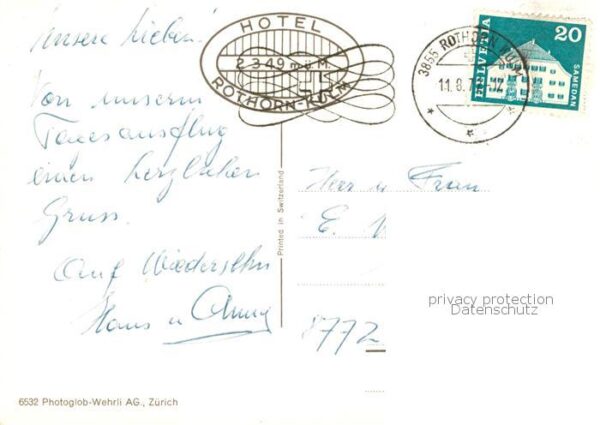 Unsere Lieben!
Von unserm
Tagesausflug
einen herzlichen
Gruss.
Auf Wiedersehn
Hans u
HOTEL
2349 m ü M
ROTHORN-KULM
3855 ROTHORN KULM
11.8.7
HELVETIA
20
SAMEDAN
Printed in Switzerland
Herr u Frau
E.
8772
privacy protection
Datenschutz
6532 Photoglob-Wehrli AG., Zürich